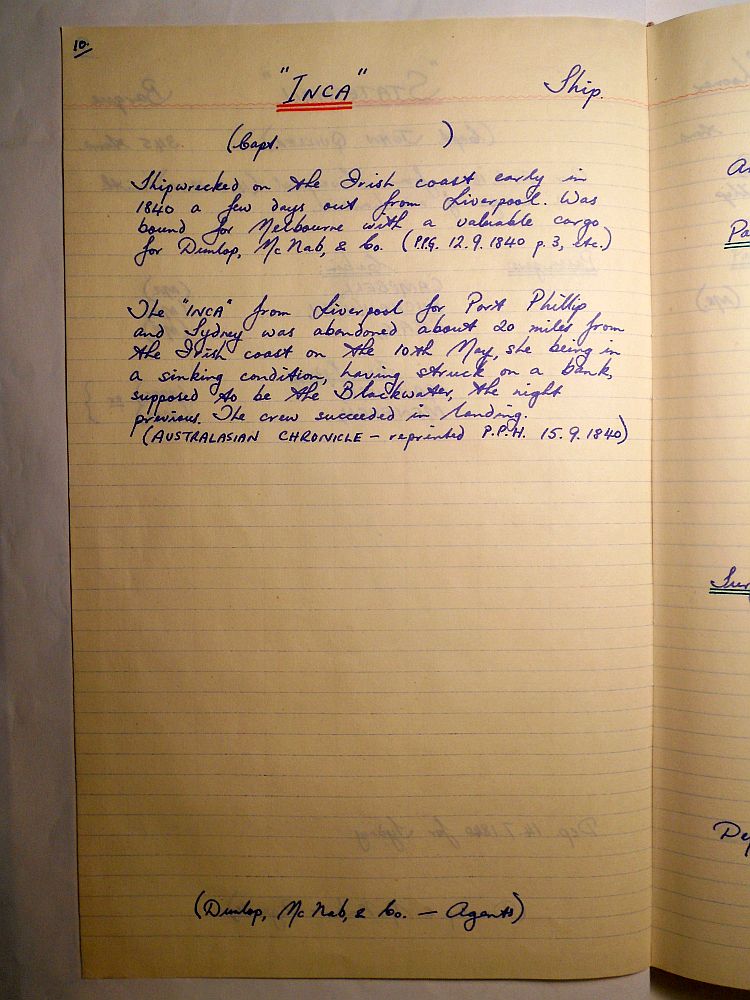 10.
"INCA" Ship.
(Capt. )
Shipwrecked on the Irish coast early in
1840 a few days out from Liverpool. Was
bound for Melbourne with a valuable cargo
for Dunlop, McNab, & Co. (P.P.G. 12.9.1840 p.3, etc.)
The "INCA" from Liverpool for Port Phillip
and Sydney was abandoned about 20 miles from
the Irish coast on the 10th May, she being in
a sinking condition, having struck on a bank,
supposed to be the Blackwater, the night
previous. The crew succeeded in landing.
(AUSTRALASIAN CHRONICLE - reprinted P.P.H. 15.9.1840)
(Dunlop, McNab, & Co. - Agents)